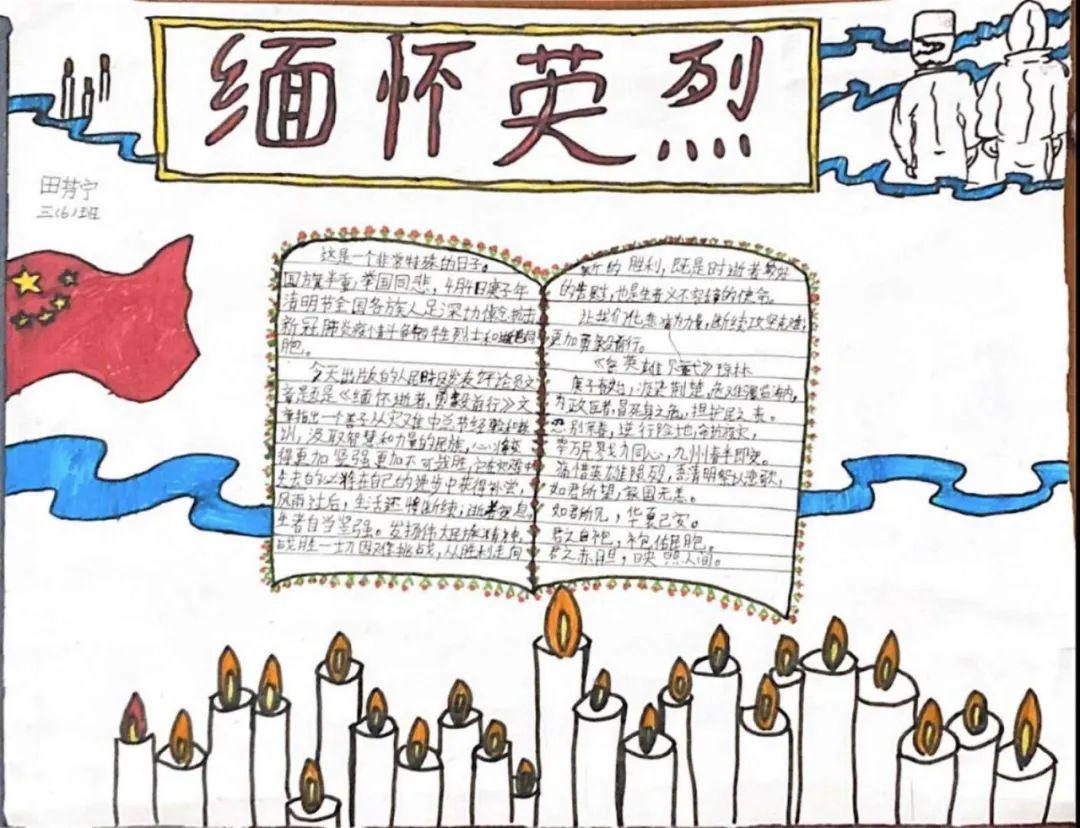 缅怀英烈
田芿宁
三(6)班
这是一个非常特殊的日子。
国旗半垂,举国同悲,4月4日庚子年
清明节全国各族人民深切悼念抗击
新冠肺炎疫情斗争牺牲烈士和逝世同
胞。
今天出版的人民日报发表评论员文
章是《缅怀逝者,勇毅前行》文
章指出一个善于从灾难中总书经验和教
训,汲取智慧和力量的民族,必
得更加坚强更加不可战胜,
失去的必将在自己的进步中获得补尝,
风雨过后,生活还将断续;逝者安息,
生者自当坚强。发扬伟大民族精神,
战胜一切困难挑战,从胜利走向
新的胜利,既是对逝者最好
的告慰,也是生者义不容辞的使命。
让我们化悲痛为力量,断续攻坚克难,
更加勇毅前行。
庚子春始,凌染荆楚,危难
悲别家春,逆行险地,
零万众戮力同心,九州春丰即
痛惜英雄陨殁,吞清明祭以悲歌,
如君所望,家国无恙。
如君所见,华夏已安。
君之白袍,
君之赤胆,映照人间。